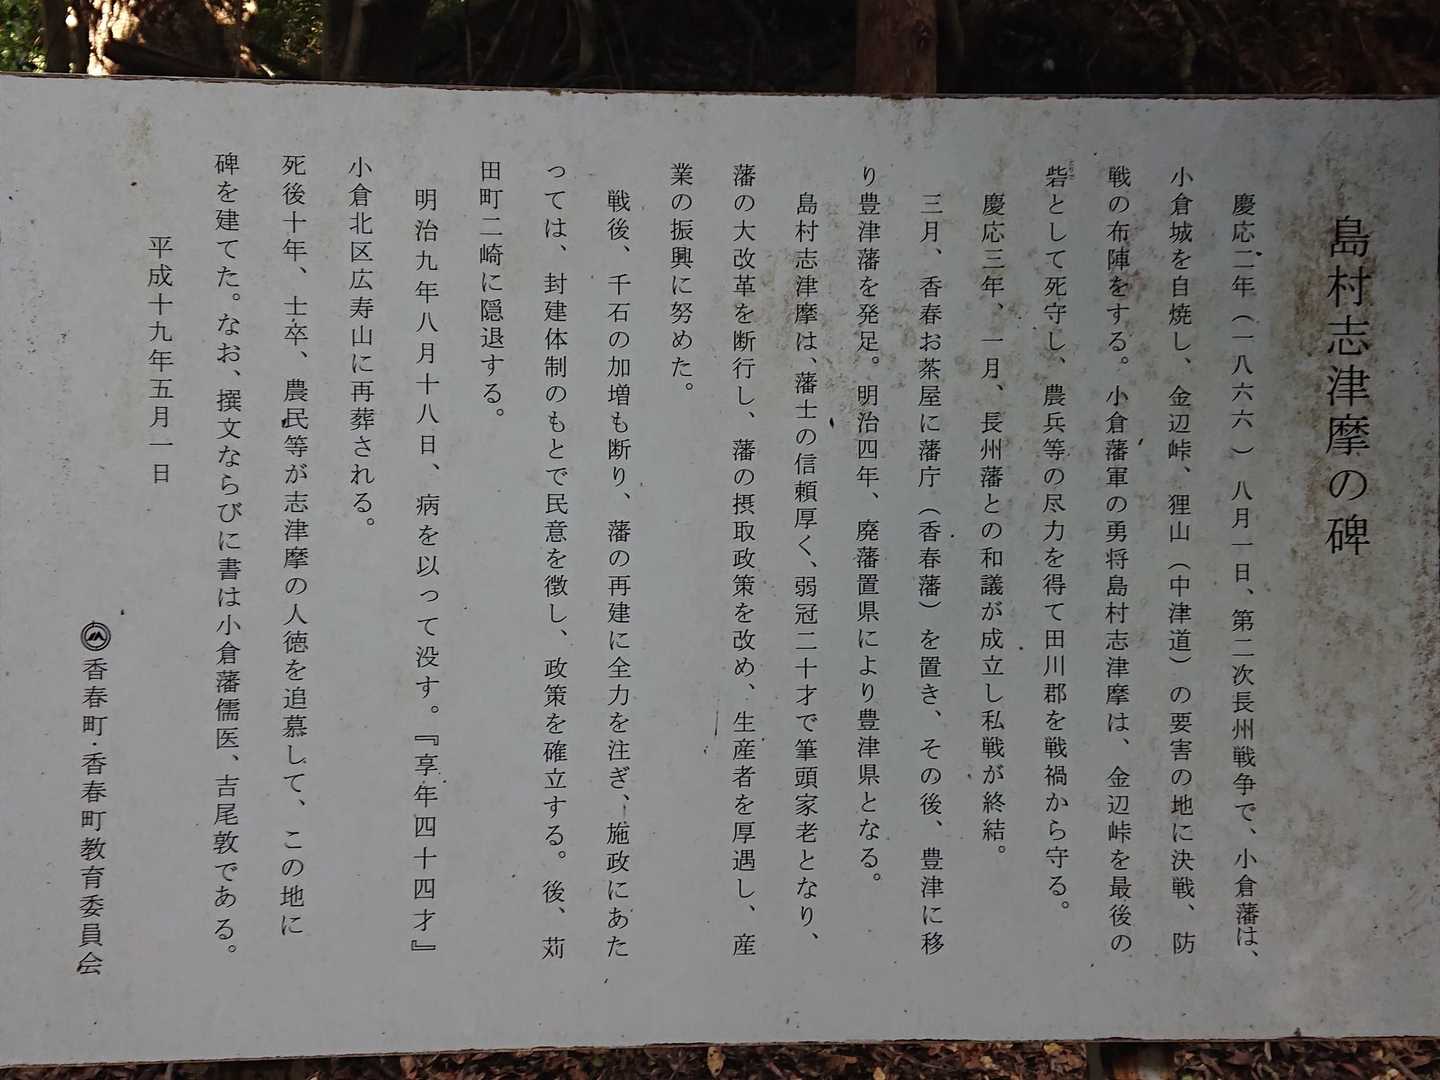 島村志津摩の碑
慶応二年（一八六六）八月一日、第二次長州戦争で、小倉藩は、
小倉城を自焼し、金辺峠、狸山（中津道）の要害の地に決戦、防
戦の布陣をする。小倉藩軍の勇将島村志津摩は、金辺峠を最後の
砦として死守し、農兵等の尽力を得て田川郡を戦禍から守る。
慶応三年、一月、長州藩との和議が成立し私戦が終結。
三月、香春お茶屋に藩庁（香春藩）を置き、その後、豊津に移
り豊津藩を発足。明治四年、廃藩置県により豊津県となる。
島村志津摩は、藩士の信頼厚く、弱冠二十才で筆頭家老となり、
藩の大改革を断行し、藩の摂取政策を改め、生産者を厚遇し、産
業の振興に努めた。
戦後、千石の加増も断り、藩の再建に全力を注ぎ、施政にあた
っては、封建体制のもとで民意を徴し、政策を確立する。後、苅
田町二崎に隠退する。
明治九年八月十八日、病を以って没す。『享年四十四才』
小倉北区広寿山に再葬される。
死後十年、士卒、農民等が志津摩の人徳を追慕して、この地に
碑を建てた。なお、撰文ならびに書は小倉藩儒医、吉尾敦である。
平成十九年五月一日
香春町・香春町教育委員会